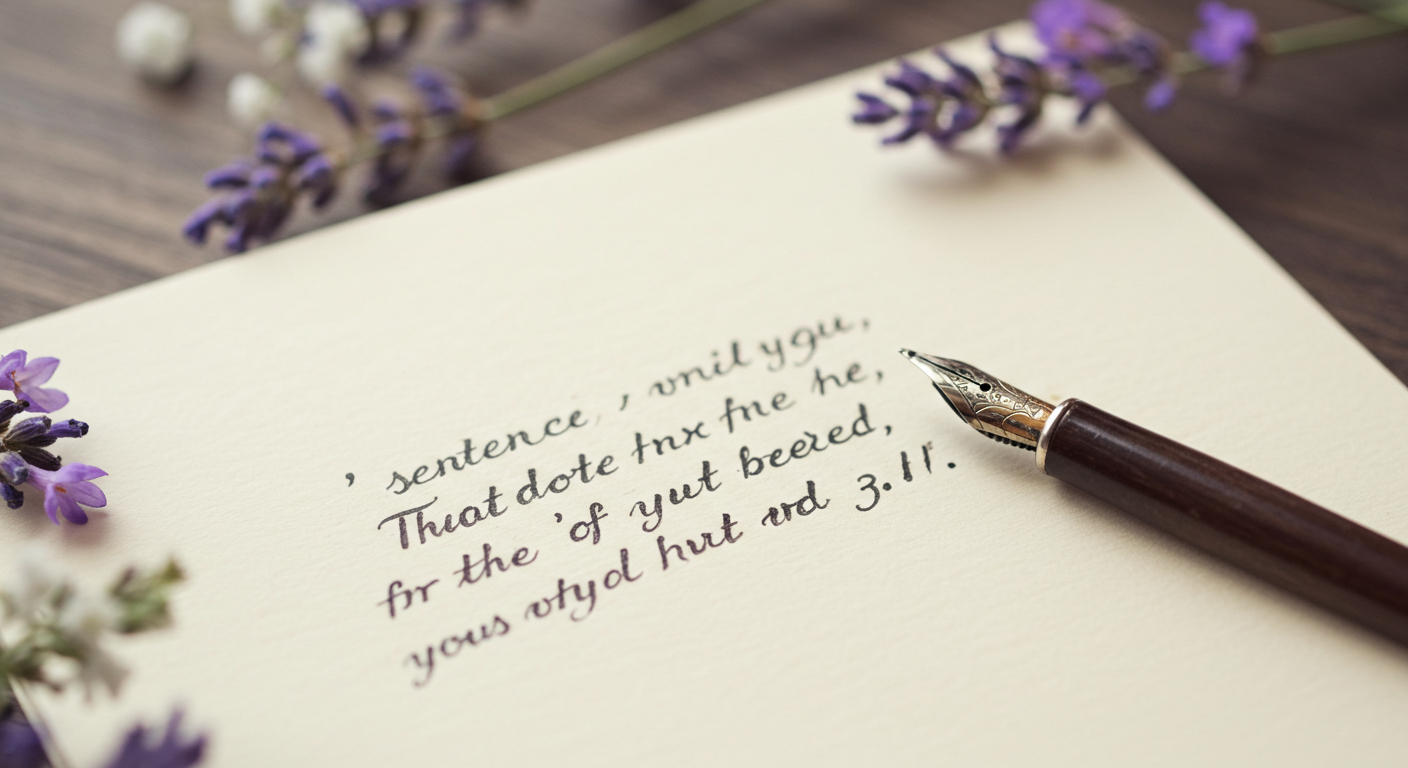 , sentence, , vnil ygu,
Thuat dote tnx fne he,
for the 'of yut beered,
yous vtyd hurt vd 3.11.